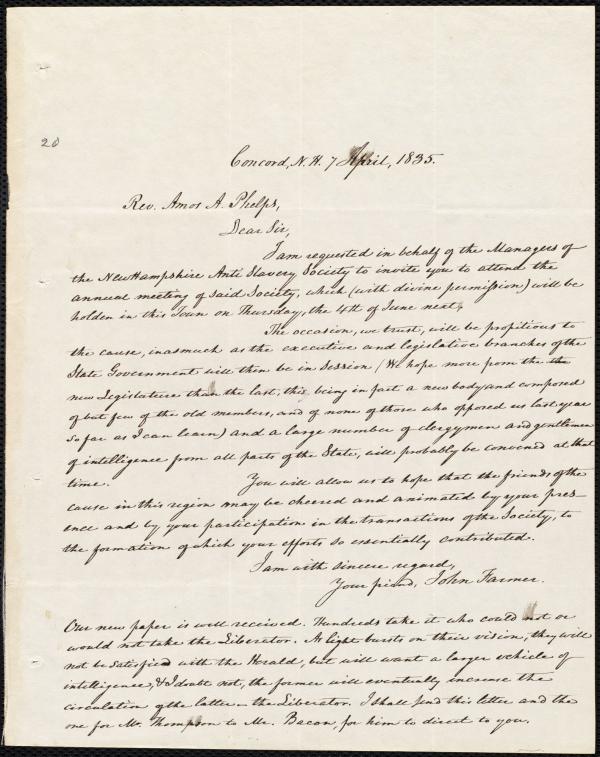 20
Concord, N. H. 7 April, 1835.
Rev. Amos A. Phelps,
Dear Sir,
I am requested in behalf of the Managers of
the New Hampshire Anti Slavery Society to invite you to attend the
annual meeting of said Society, which (with divine permission) will be
holden in this Town on Thursday, the 4th of June next,
The occasion, we trust, will be propitious to
the cause, inasmuch as the executive and legislative branches of the
State Government will then be in session (We hope more from the the
new Legislature than the last, this, being in fact a new body and composed
of but few of the old members, and of none of those who opposed us last year
so far as I can learn) and a large number of clergymen and gentlemen
of intelligence from all parts of the State, will probably be convened at that
time.
You will allow us to hope that the friends of the
cause in this region may be cheered and animated by your pres-
ence and by your participation in the transactions of the Society, to
the formation of which your efforts so essentially contributed.
I am with sincere regard,
Your friend, John Farmer.
Our new paper is well received. Hundreds take it who could not or
would not take the Liberator. As light bursts on their vision, they will
not be satisfied with the Herald, but will want a larger vehicle of
intelligence, & I doubt not, the former will eventually increase the
circulation of the latter - the Liberator. I shall send this letter and the
one for Mr. Thompson to Mr. Bacon, for him to direct to you.